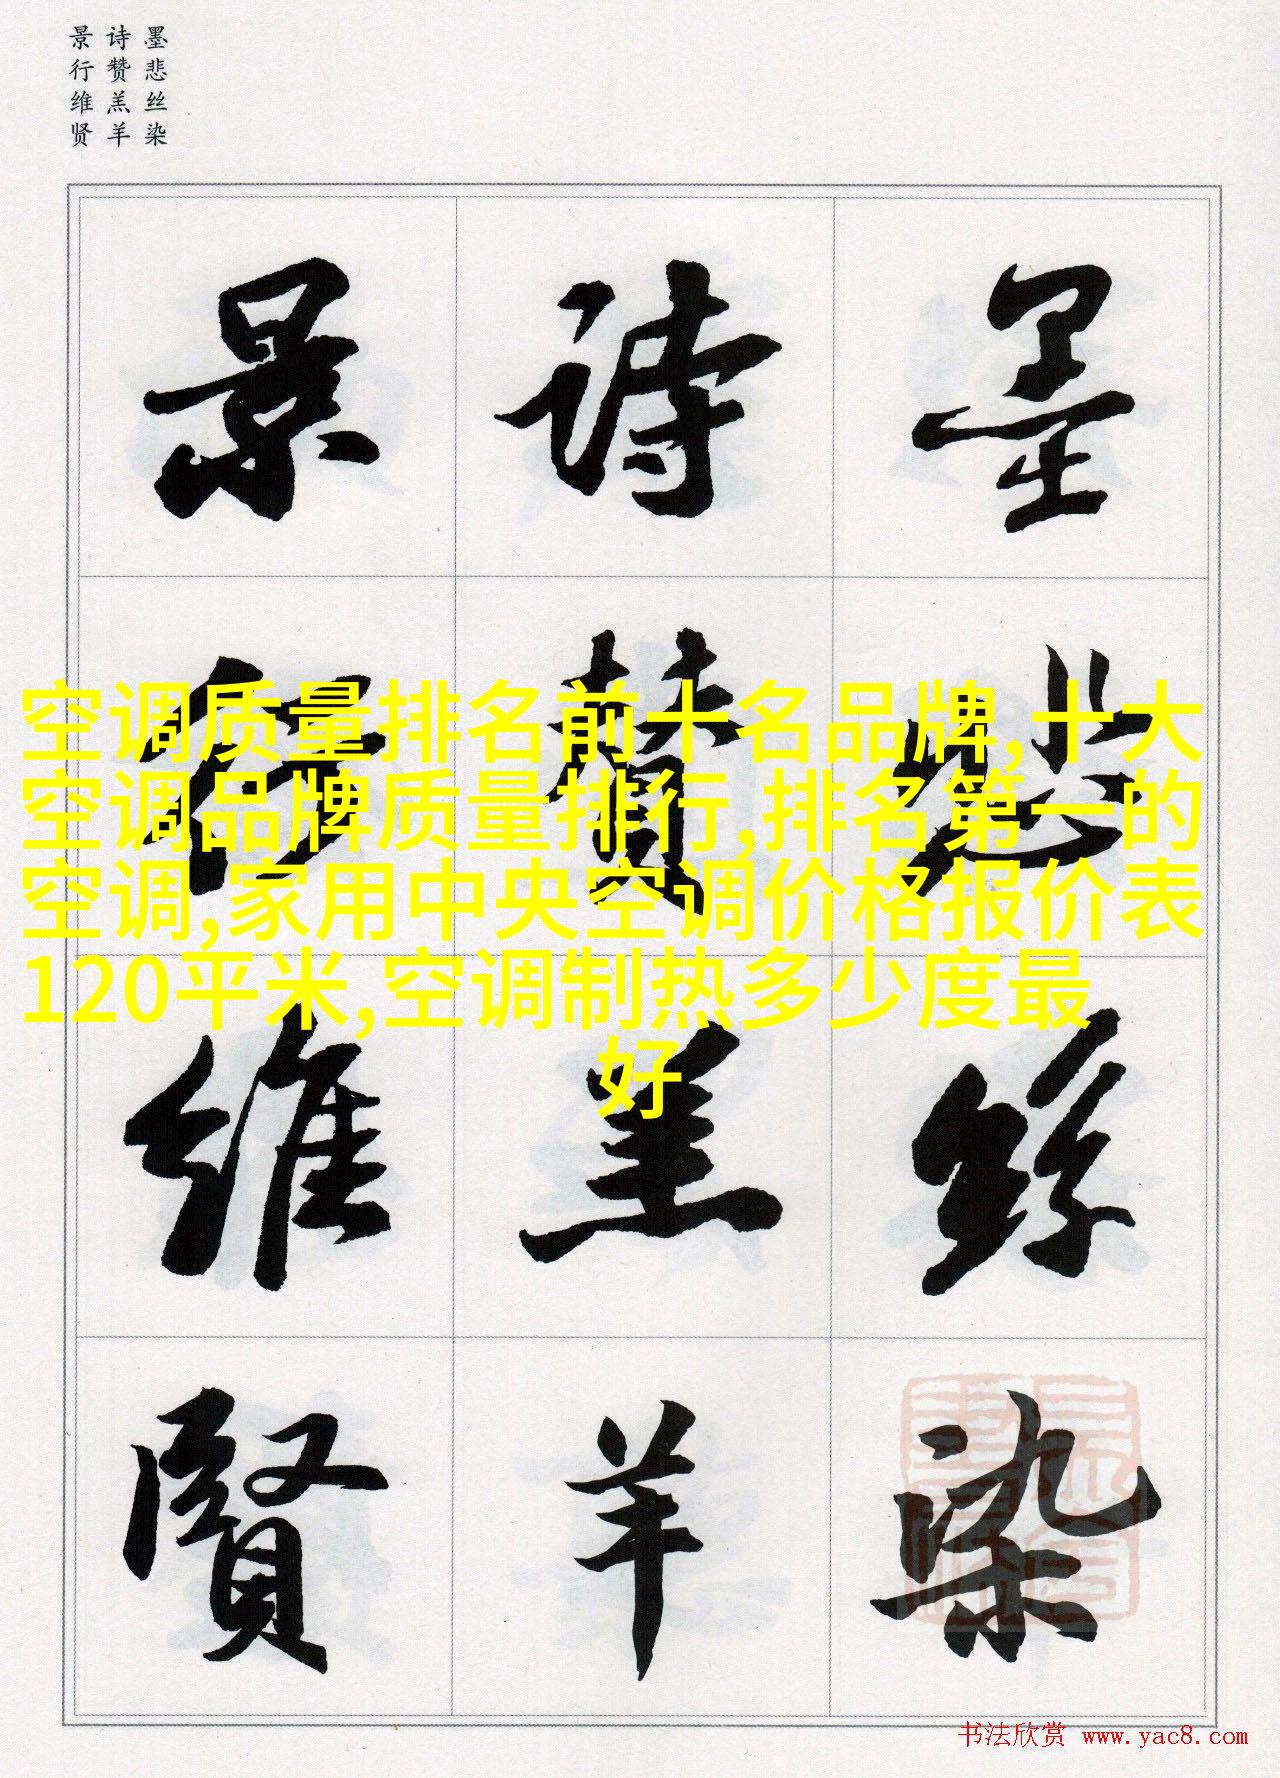 墨悲丝染
诗赞羔羊
景行维贤
墨悲絲染
詩贊羔羊
景行維賢
空调质量排名前十名品牌,十大
空调品牌质量排行,排名第一的
空调,家用中央空调价格报价表
120平米,空调制热多少度最
好
书法欣赏 www.yac8.com